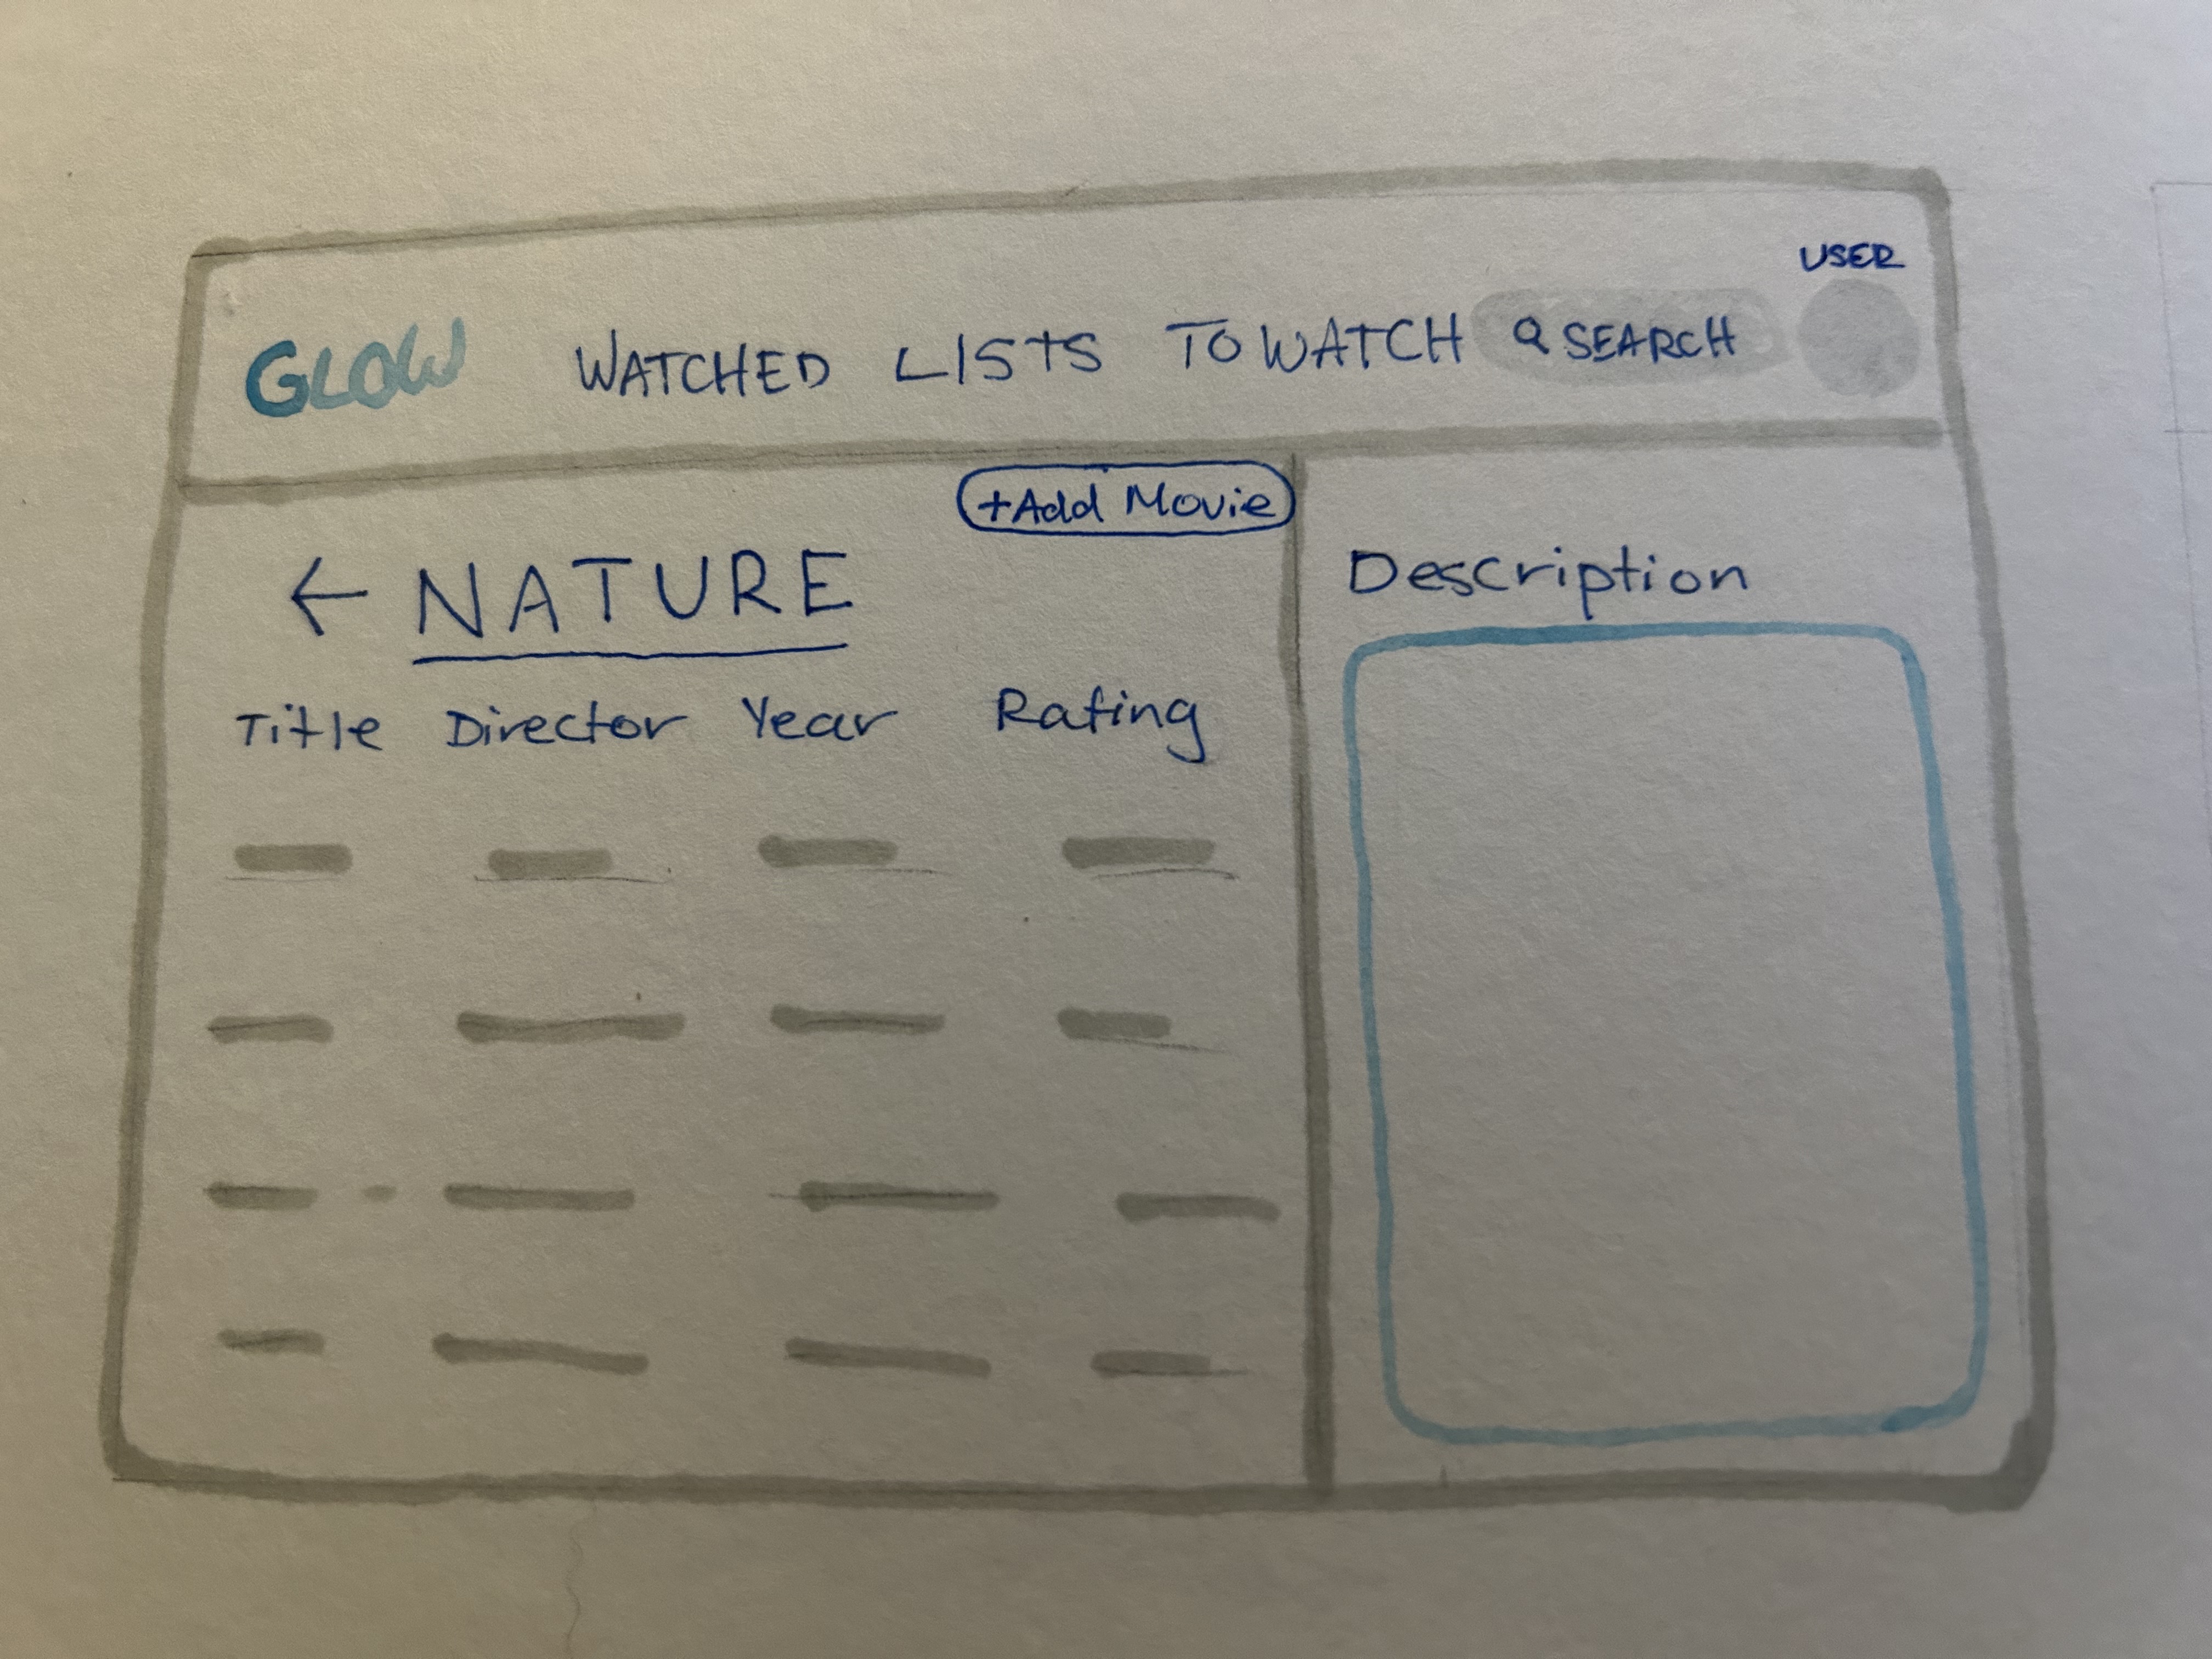 USER
GLOW WATCHED LISTS TO WATCH SEARCH
+Add Movie
← NATURE
Title Director Year Rating
Description